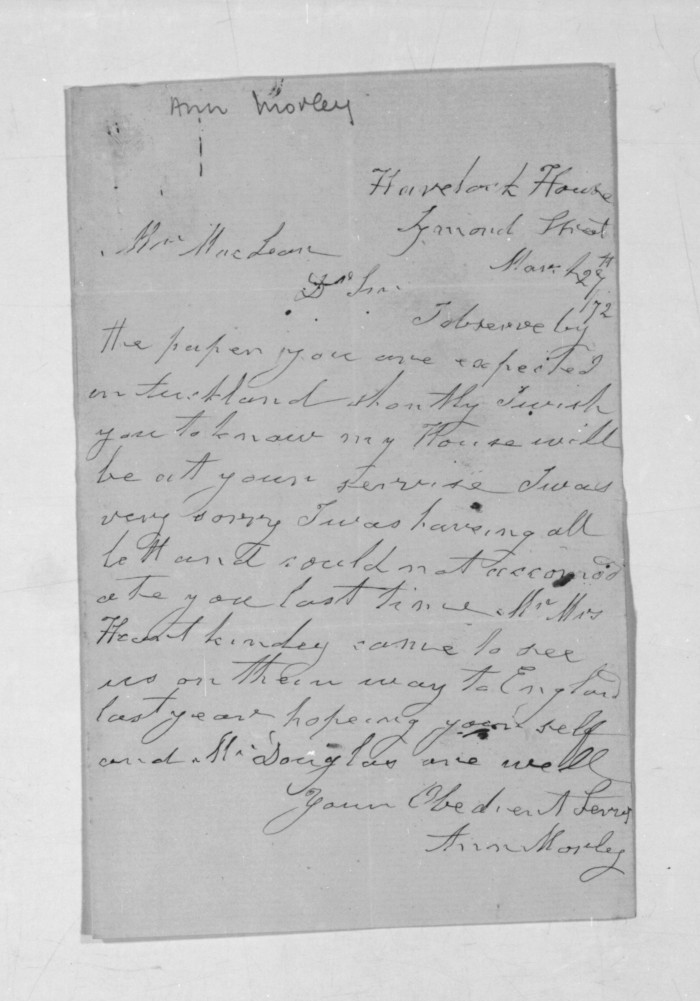 Ann Morley
Havelock House
Symond Street
March 27th
/72
Mr MacLean
Dr Sir
I observe by
the paper you are expected
in Auckland shortly I wish
you to know my House will
be at your servise I was
very sorry I was haveing all
lett and could not accomod
ate you last time Mr Mrs
Heart kindey came to see
us on their way to England
last year hopeing your self
and Mr Douglas are well
Your Obedient Servt
Ann Morley